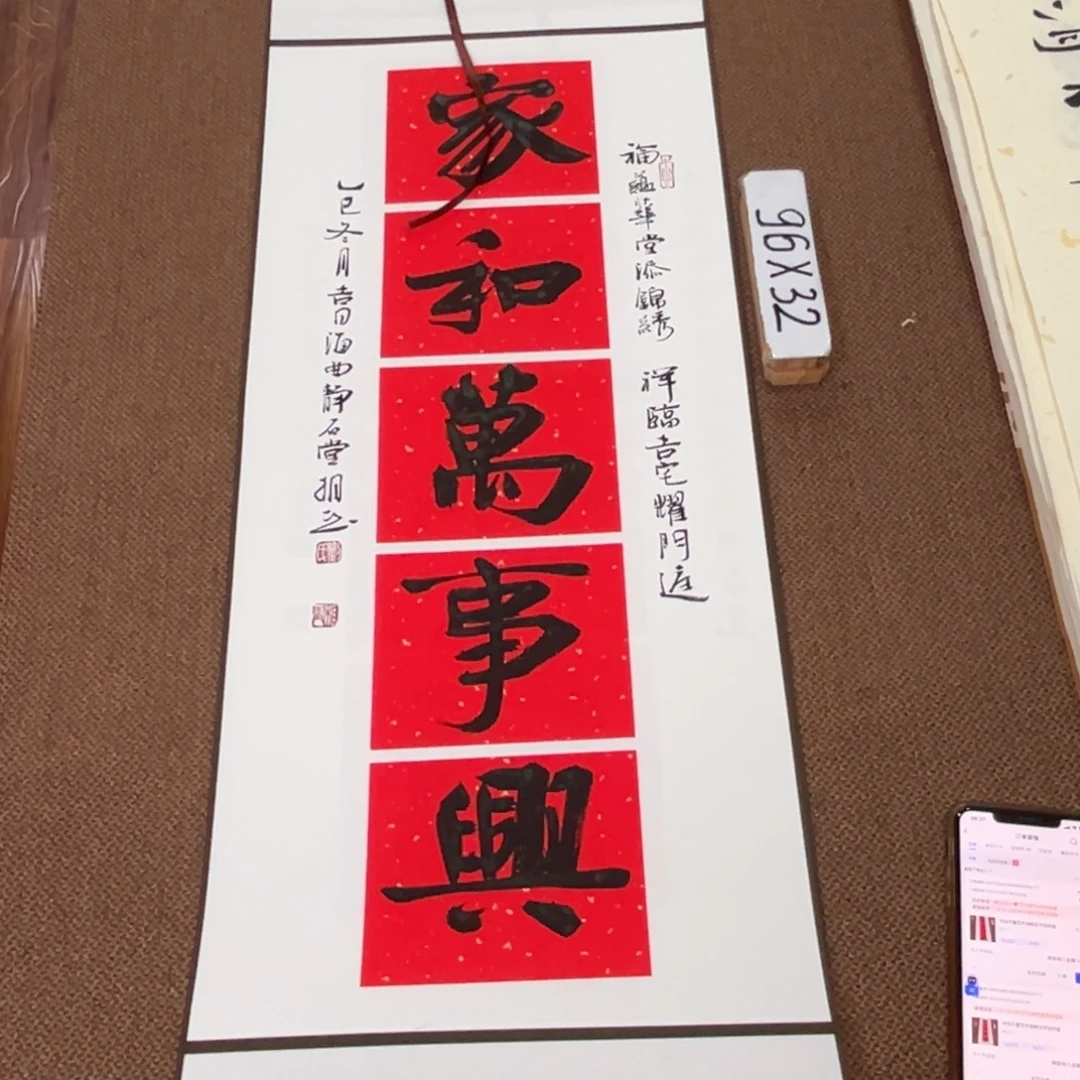 家和萬事興
福臨華堂添錦綉 祥臨吉宅耀門庭
乙巳冬月吉日海曲靜石堂
96X32